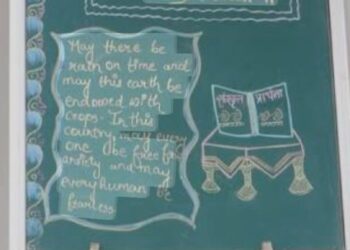 May there be
rain on time and
may this earth be
endowed with
Crops. In this
country may every
one be free for
anxiety and may
every human be
fearless
संस्कृत प्रार्थना